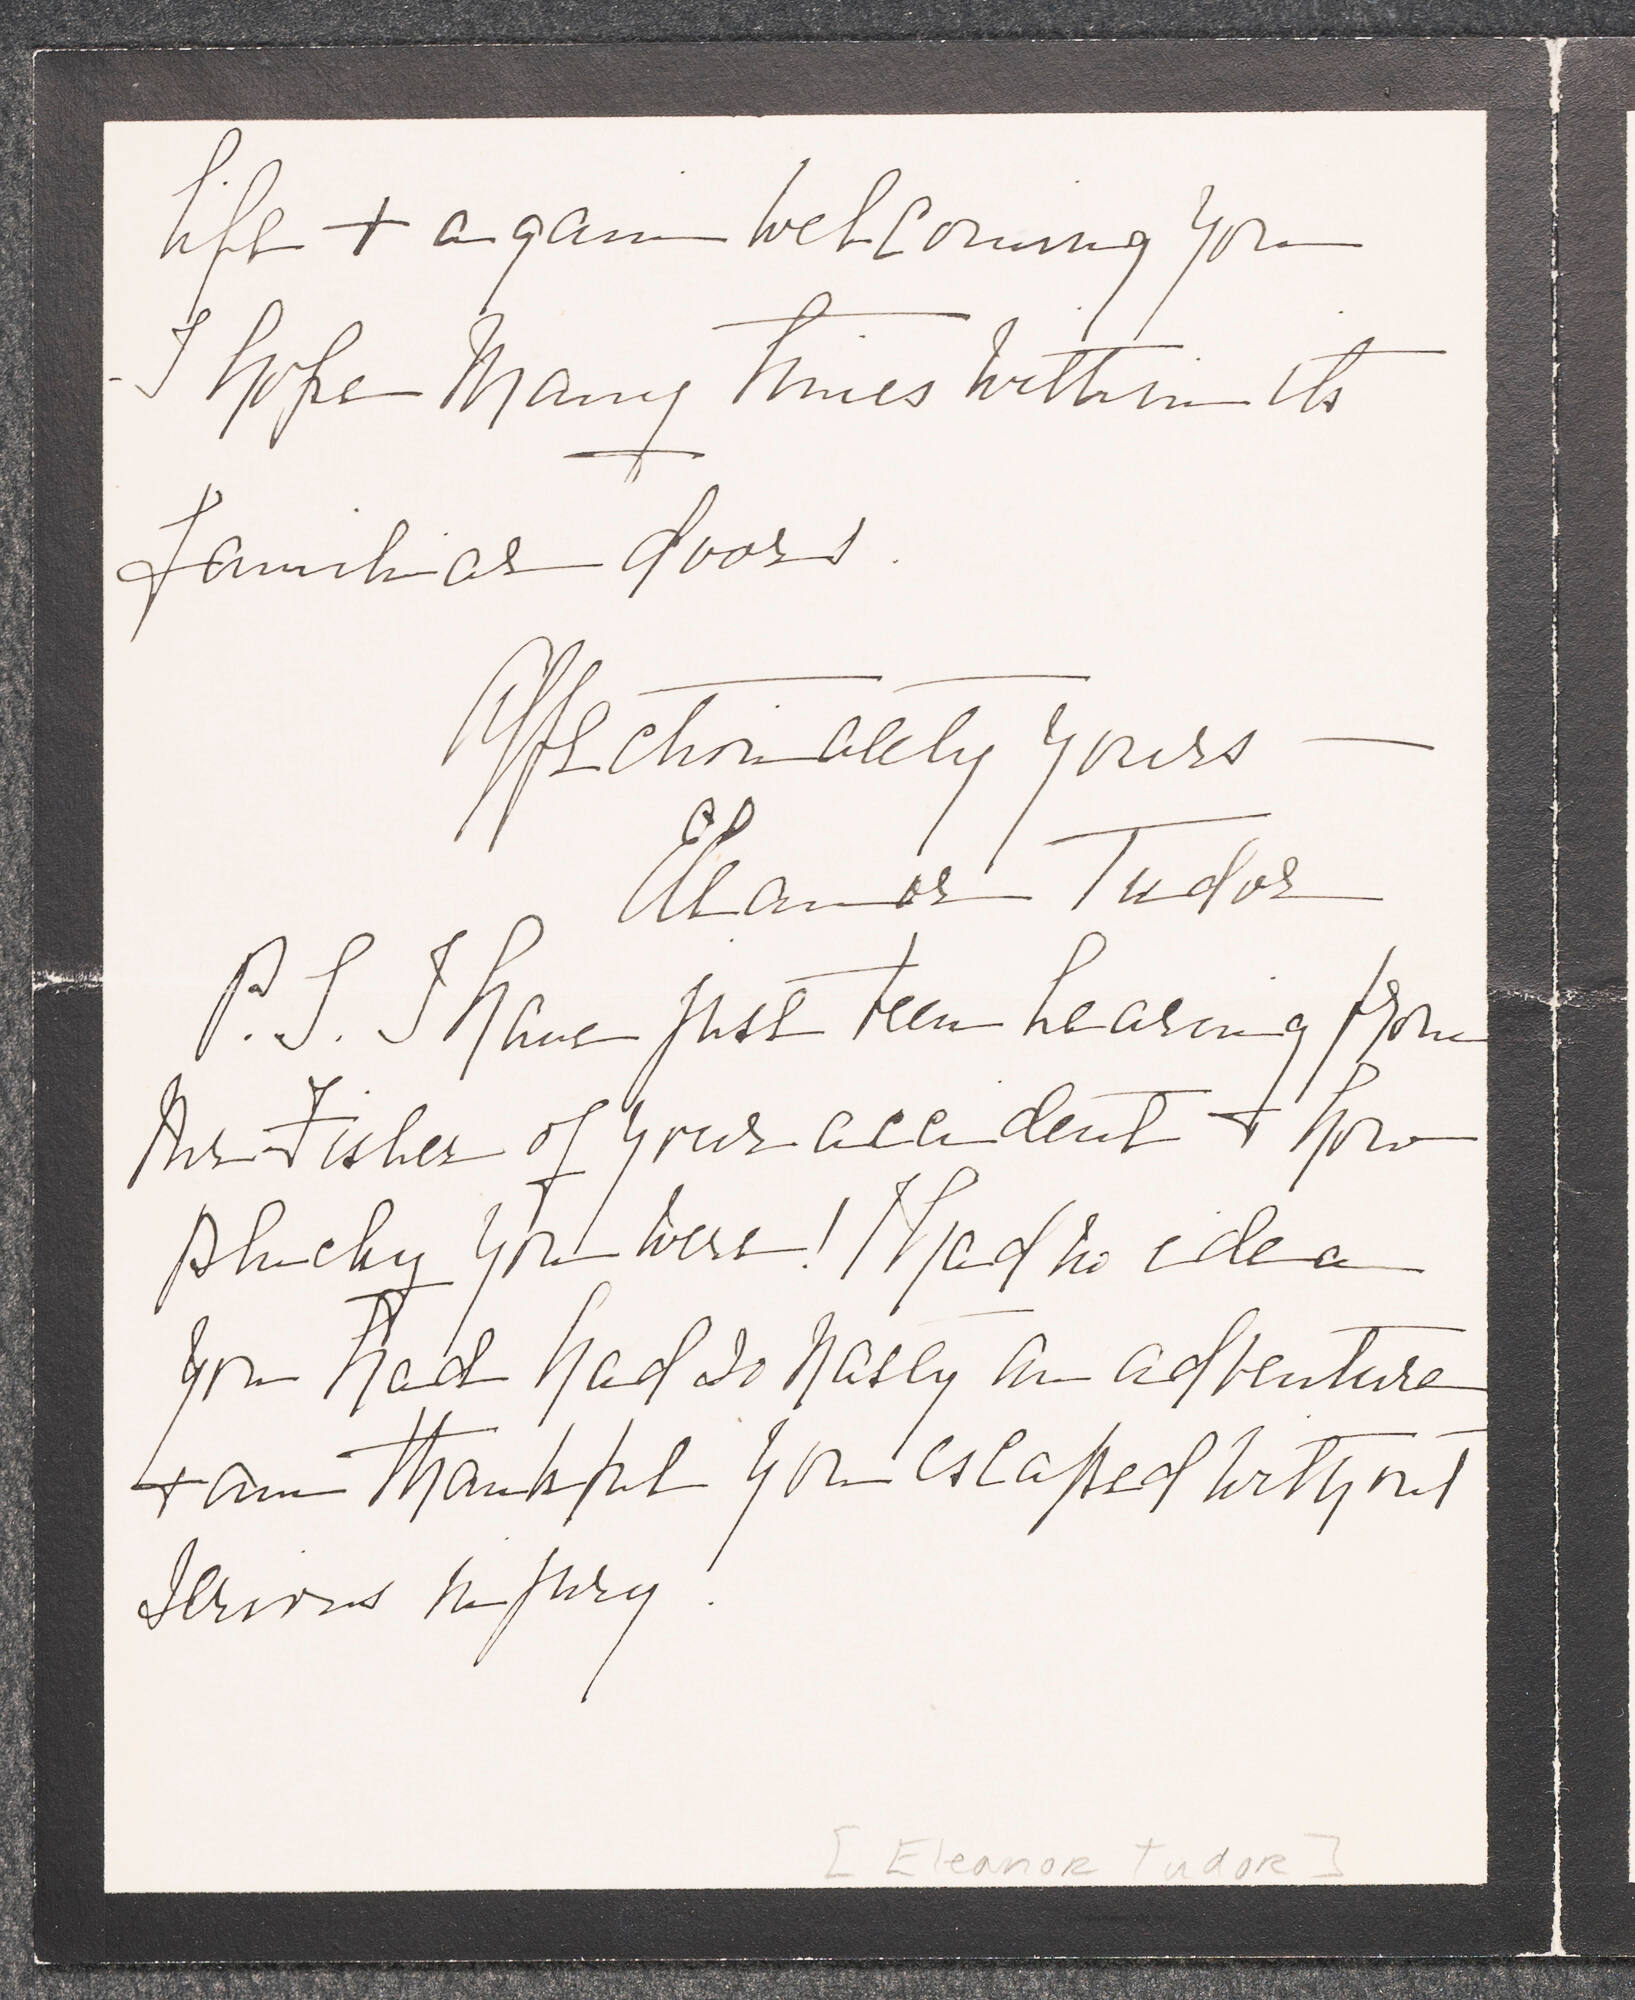 life + again welcoming you
- I hope many times within its
familiar doors.
Affectionately yours —
Eleanor Tudor
P.S. I have just been hearing from
Mrs Fisher of your accident + how
plucky you were! I had no idea
you had had so nasty an adventure
+ am thankful you escaped without
serious injury.
[Eleanor Tudor]